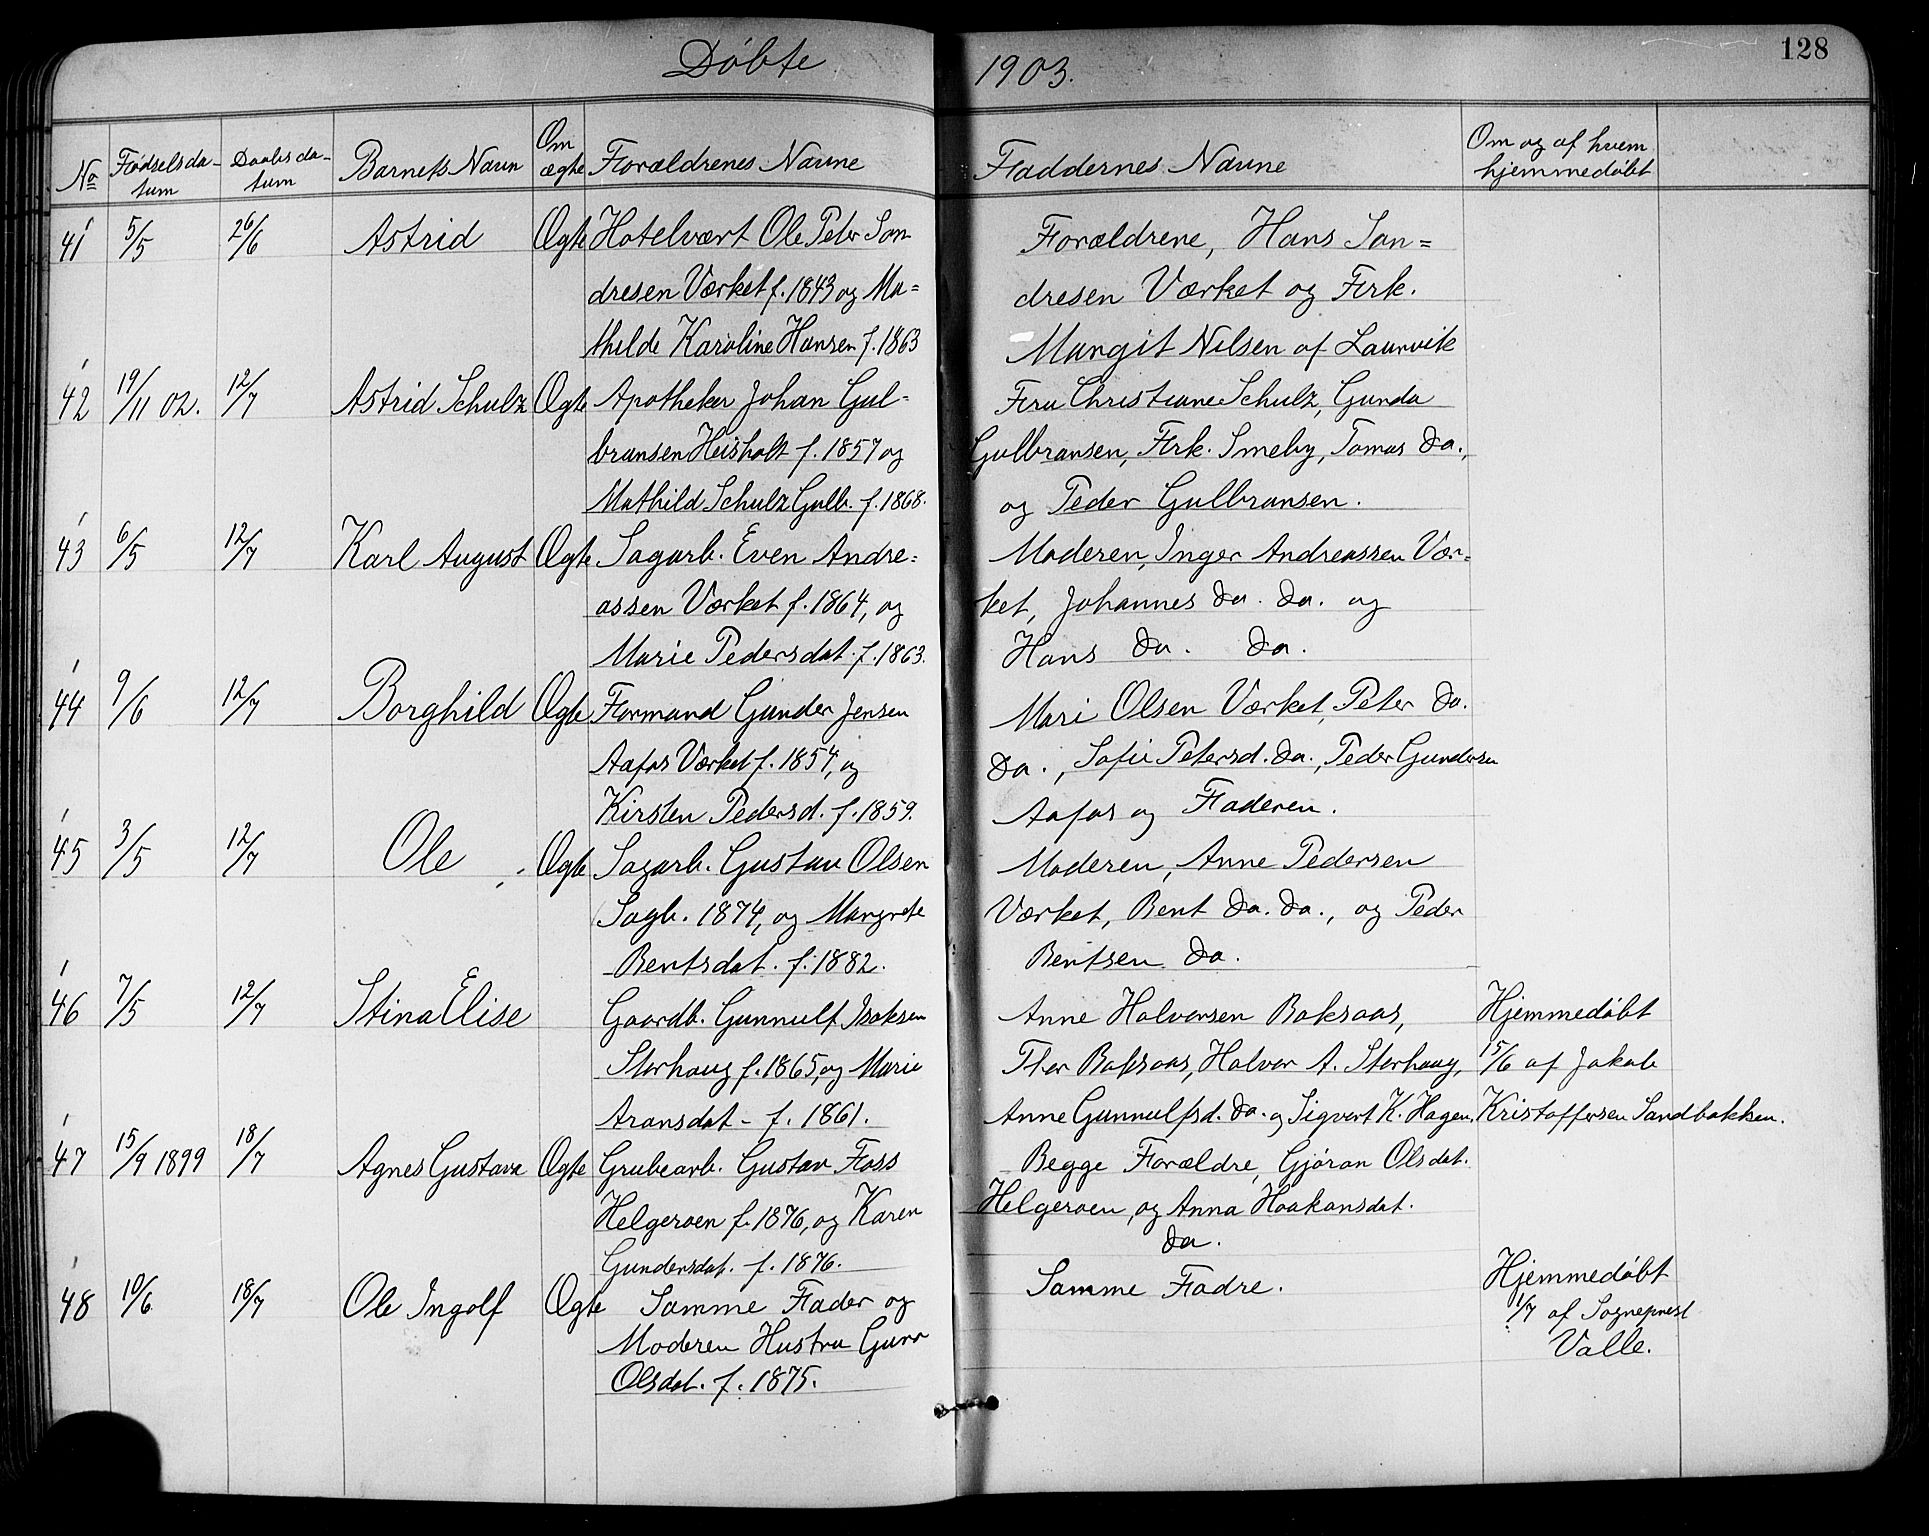 Døbte 1903. 128
No Fødselsda-tum Daabsda-tum Barnets Navn Om ægte Forældrenes Navne Faddernes Navne Om og af hvem hjemmedøbt
41 5/5 26/6 Astrid Ægte Hotelvært Ole Peter San- Forældrene, Hans San=
dresen Værket f. 1843 og Ma= dresen Værket og Frk.
thilde Karoline Hansen f. 1863 Margit Nilsen af Laurvik
42 19/11 02. 12/7 Astrid Schulz Ægte Apotheker Johan Gul- Fru Christiane Schulz, Gunda
bransen Heisholt f. 1857 og Gulbransen, Frk. Smeby, Tomas do.,
Mathild Schulz Gulb. f. 1868. og Peder Gulbransen.
43 6/5 12/7 Karl August Ægte Sagarb. Even Andre= Moderen, Inger Andreassen Vær=
assen Værket f. 1864, og ket, Johannes do. do. og
Marie Pedersdat. f. 1863. Hans do. do.
44 9/6 12/7 Borghild Ægte Formand Gunder Jensen Mari Olsen Værket, Peter do.
Aafos Værket f. 1854, og do., Sofie Petersd. do., Peder Gundersen
Kirsten Pedersd. f. 1859. Aafos og Faderen.
45 3/5 12/7 Ole Ægte Sagarb. Gustav Olsen Moderen, Anne Pedersen
Sagb. 1874, og Margrete Værket, Bent do. do., og Peder
Bentsdat. f. 1882. Bentsen do.
46 7/5 12/7 Stina Elise Gaardb. Gunnulf Isaksen Anne Halvorsen Baksaas, Hjemmedøbt
Storhaug f. 1865, og Marie Ther Baksaas, Halvor A. Storhaug, 15/6 af Jakob
Aransdat - f. 1861. Anne Gunnulfsd. do. og Sigvert K. Hagen. Kristoffersen Sandbakken.
47 15/9 1899 18/7 Agnes Gustava Ægte Grubearb. Gustav Foss Begge Forældre, Gjøran Olsdat.
Helgeroen f. 1876, og Karen Helgeroen, og Anna Haakonsdat.
Gundersdat. f. 1876. do.
48 10/6 18/7 Ole Ingolf Ægte Samme Fader og Samme Fadre. Hjemmedøbt
Moderen Hustru Guro 1/7 af Sogneprest
Olsdat. f. 1875. Valle.